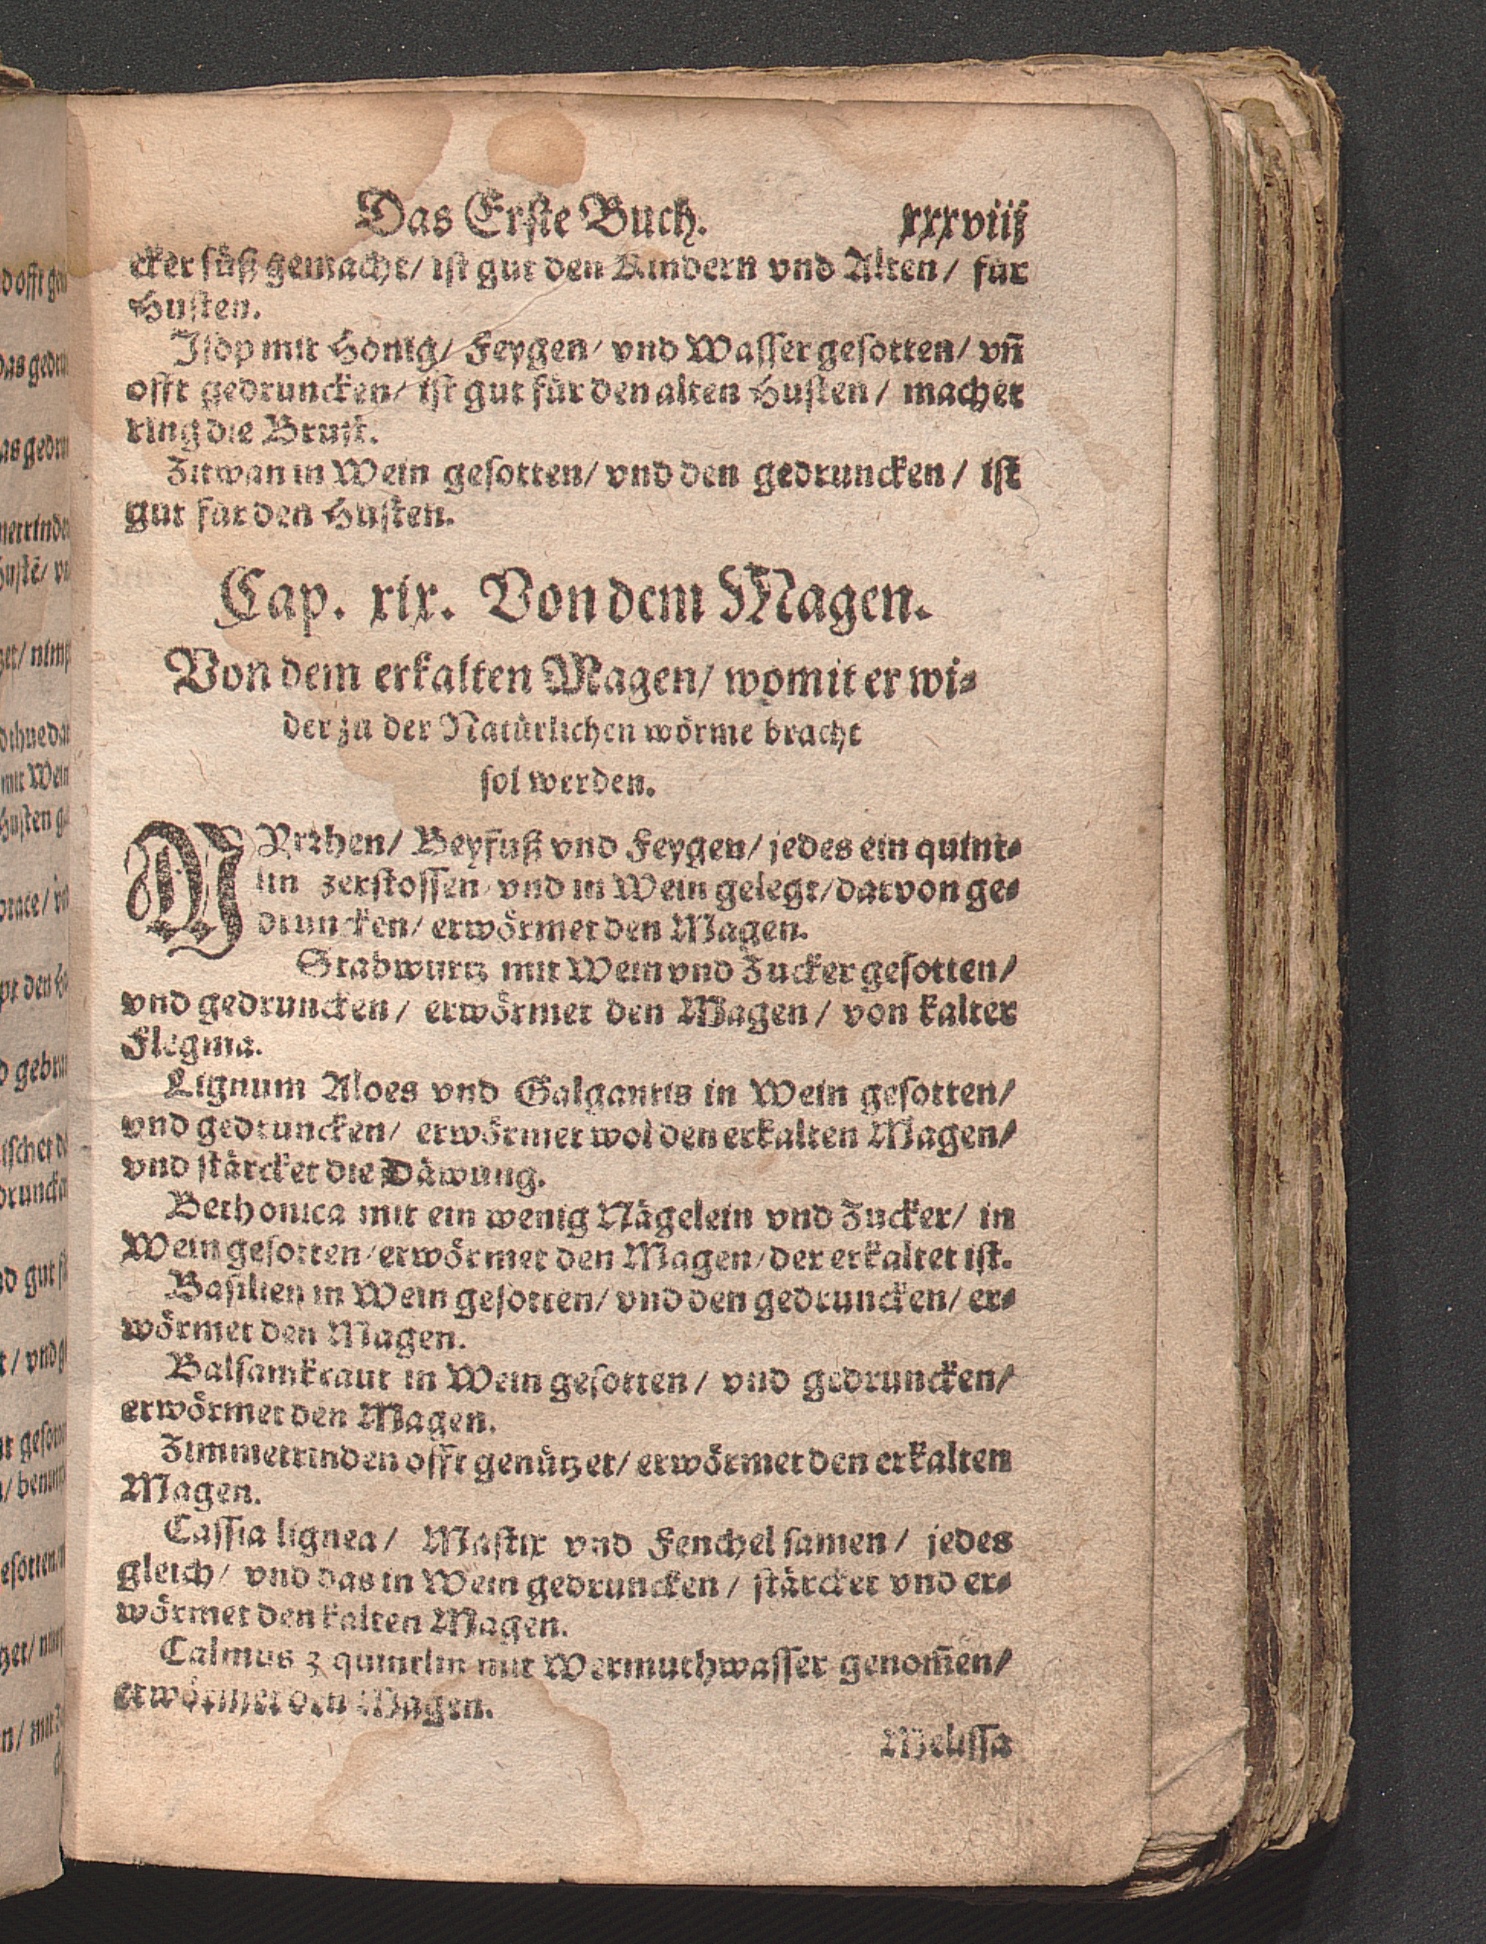 Das Erste Buch. xxxviij
cker süß gemacht/ ist gut den Kindern vnd Alten/ für
Husten.
Isop mit Hönig/ Feygen/ vnd Wasser gesotten/ vñ
offt gedruncken/ ist gut für den alten Husten/ machet
ring die Brust.
Zitwan in Wein gesotten/ vnd den gedruncken/ ist
gut für den Husten.
Cap. xix. Von dem Magen.
Von dem erkalten Magen/ womit er wi⸗
der zu der Natürlichen wörme bracht
sol werden.
MYrrhen/ Beyfuß vnd Feygen/ jedes ein quint⸗
lin zerstossen/ vnd in Wein gelegt/ darvon ge⸗
druncken/ erwörmet den Magen.
Stabwurtz mit Wein vnd Zucker gesotten/
vnd gedruncken/ erwörmet den Magen/ von kalter
Flegma.
Lignum Aloes vnd Galgantis in Wein gesotten/
vnd gedruncken/ erwörmet wol den erkalten Magen/
vnd stärcket die Däwung.
Bethonica mit ein wenig Nägelein vnd Zucker/ in
Wein gesotten/ erwörmet den Magen/ der erkaltet ist.
Basilien in Wein gesotten/ vnd den gedruncken/ er⸗
wörmet den Magen.
Balsamkraut in Wein gesotten/ vnd gedruncken/
erwörmet den Magen.
Zimmetrinden offt genützet/ erwörmet den erkalten
Magen.
Cassia lignea/ Mastix vnd Fenchel samen/ jedes
gleich/ vnd das in Wein gedruncken/ stärcket vnd er⸗
wörmet den kalten Magen.
Calmus ʒ quintlin mit Wermuthwasser genom̃en/
erwörmet den Magen.
Melissa